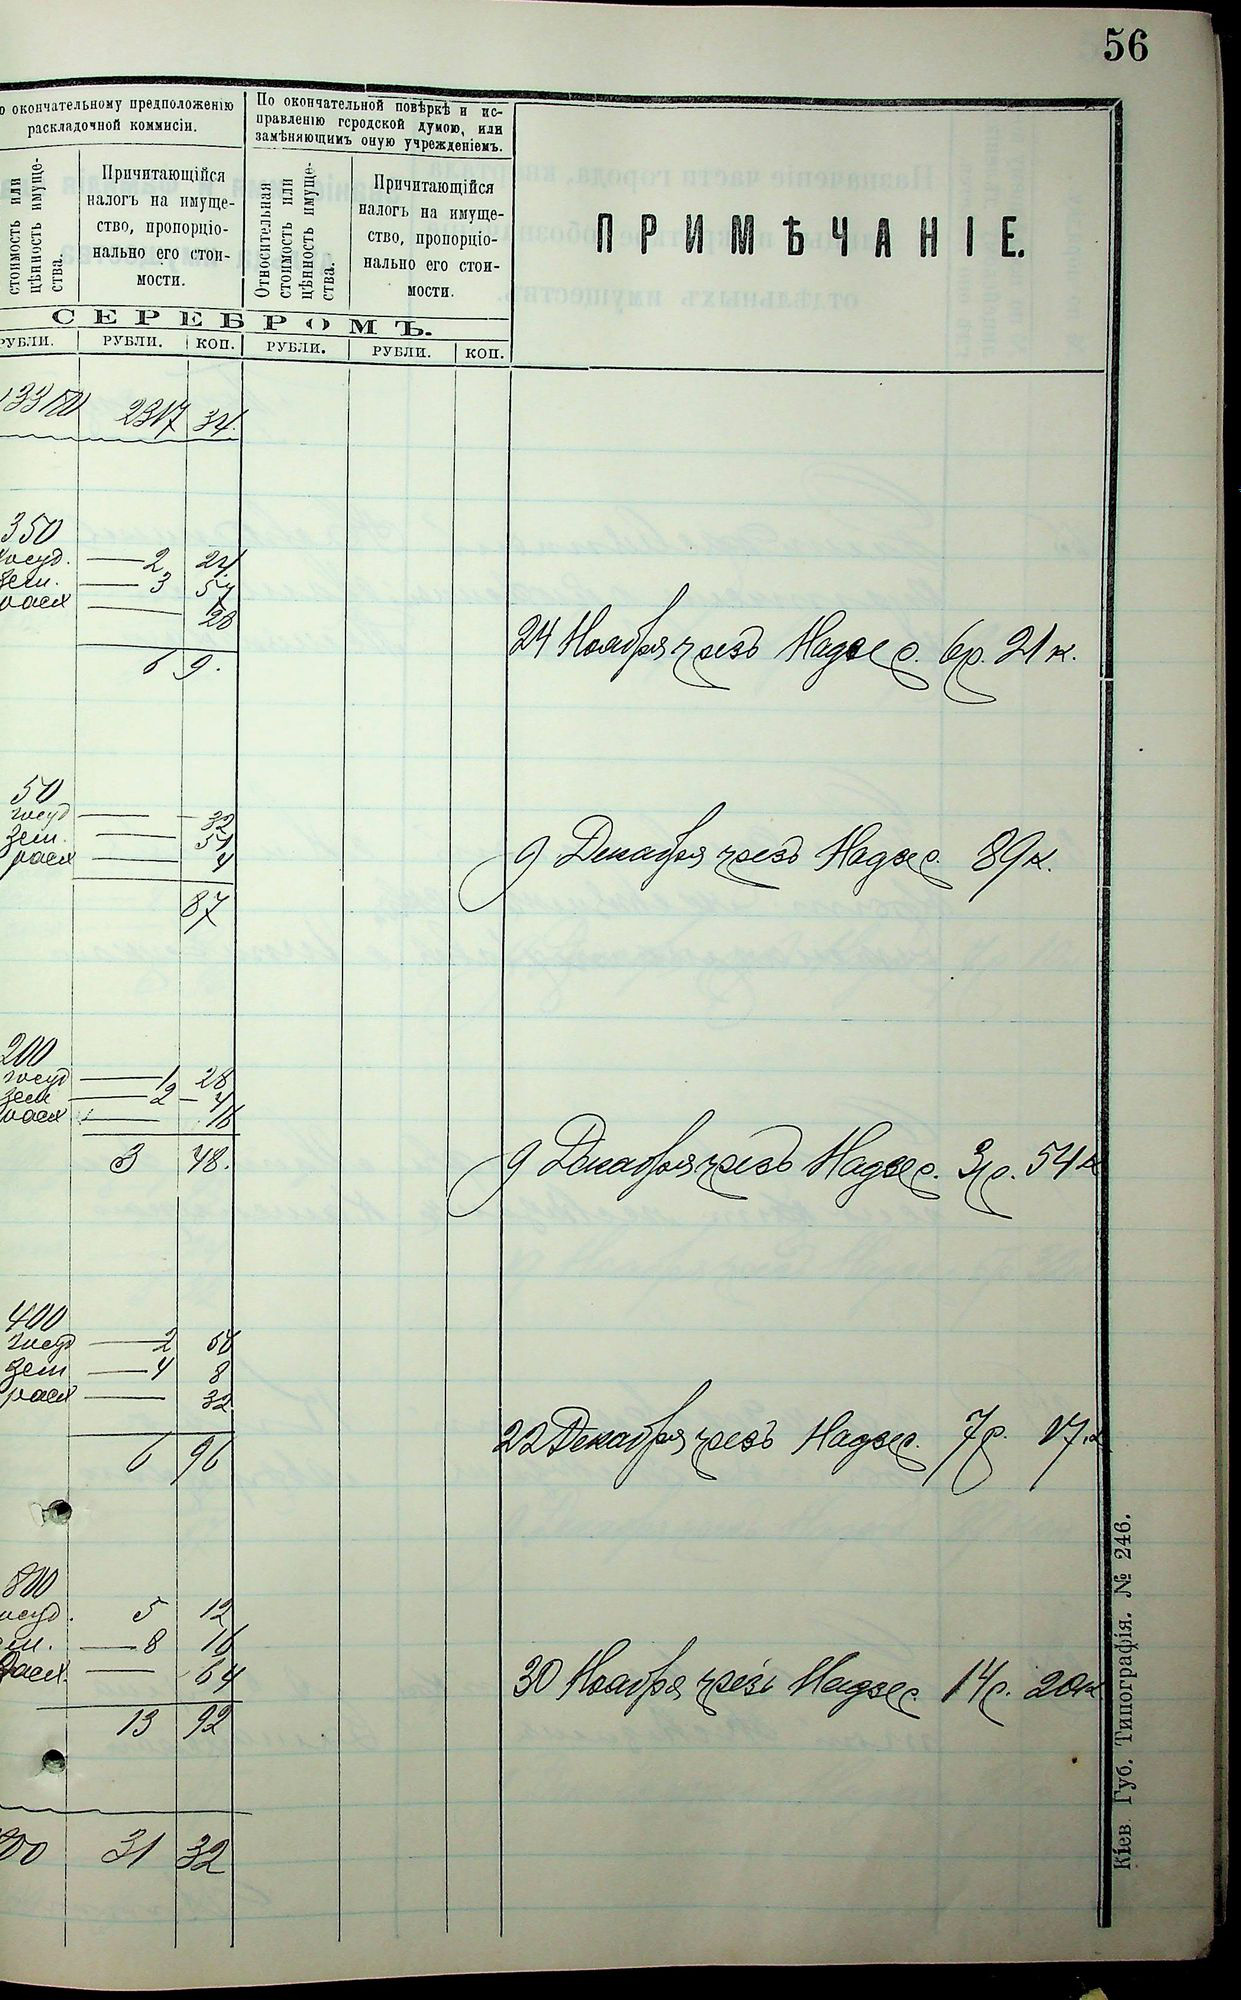 56
о окончательному предположенію
раскладочной коммисіи.
По окончательной повѣркѣ и ис-
правленію городской думою, или
замѣняющимъ оную учрежденіемъ.
стоимость или
цѣнность имуще-
ства.
Причитающійся
налогъ на имуще-
ство, пропорціо-
нально его стои-
мости.
Относительная
стоимость или
цѣнность имуще-
ства.
Причитающійся
налогъ на имуще-
ство, пропорціо-
нально его стои-
мости.
ПРИМѢЧАНІЕ.
СЕРЕБРОМЪ.
РУБЛИ. РУБЛИ. КОП. РУБЛИ. РУБЛИ. КОП.
2317 34.
350
госуд. — 2 24
зем. — 3 57
расх — 28
6 9.
24 Ноября чрезъ Надзер. 6р. 21 к.
50
госуд — 32
зем. — 51
расх — 4
87
9 Декабря чрезъ Надзер. 89 к.
200
госуд — 1 28
зем — 2 — 4
расх — 16
3 48.
9 Декабря чрезъ Надзер. 3р. 54 к
400
госуд — 2 56
зем — 4 8
расх — 32
6 96
22 Декабря чрезъ Надзер. 7р. 17.к
800
осуд. 5 12
ем. — 8 16
расх. — 64
13 92
30 Ноября чрезъ Надзер. 14р. 20к
00 31 32
Кіев. Губ. Типографія. № 246.